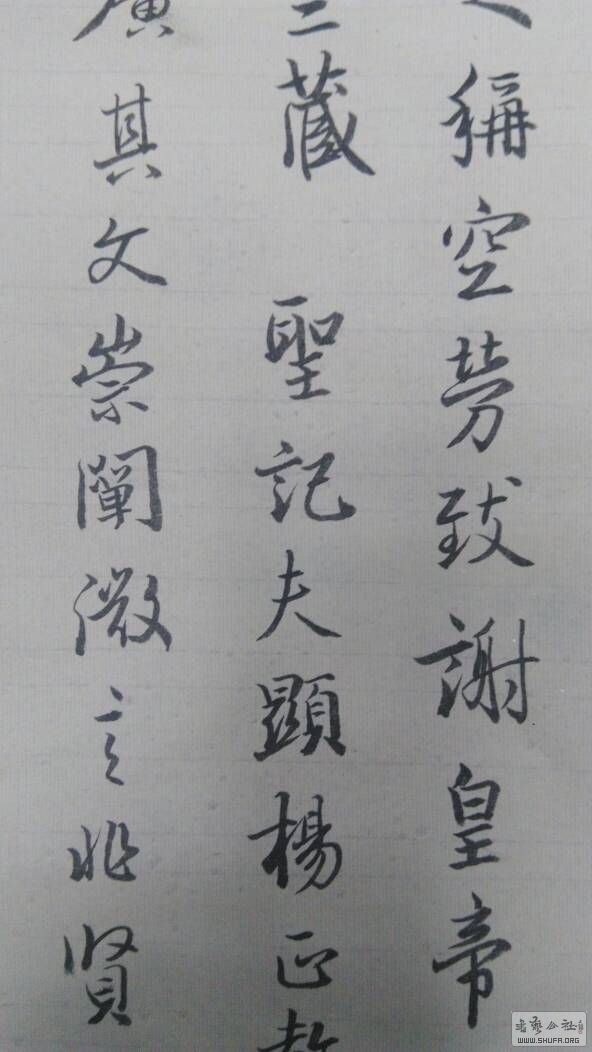 稱空勞致謝皇帝
三藏 聖記夫顯楊正教
廣其文崇闡微言非賢
WWW.SHUFA.ORG